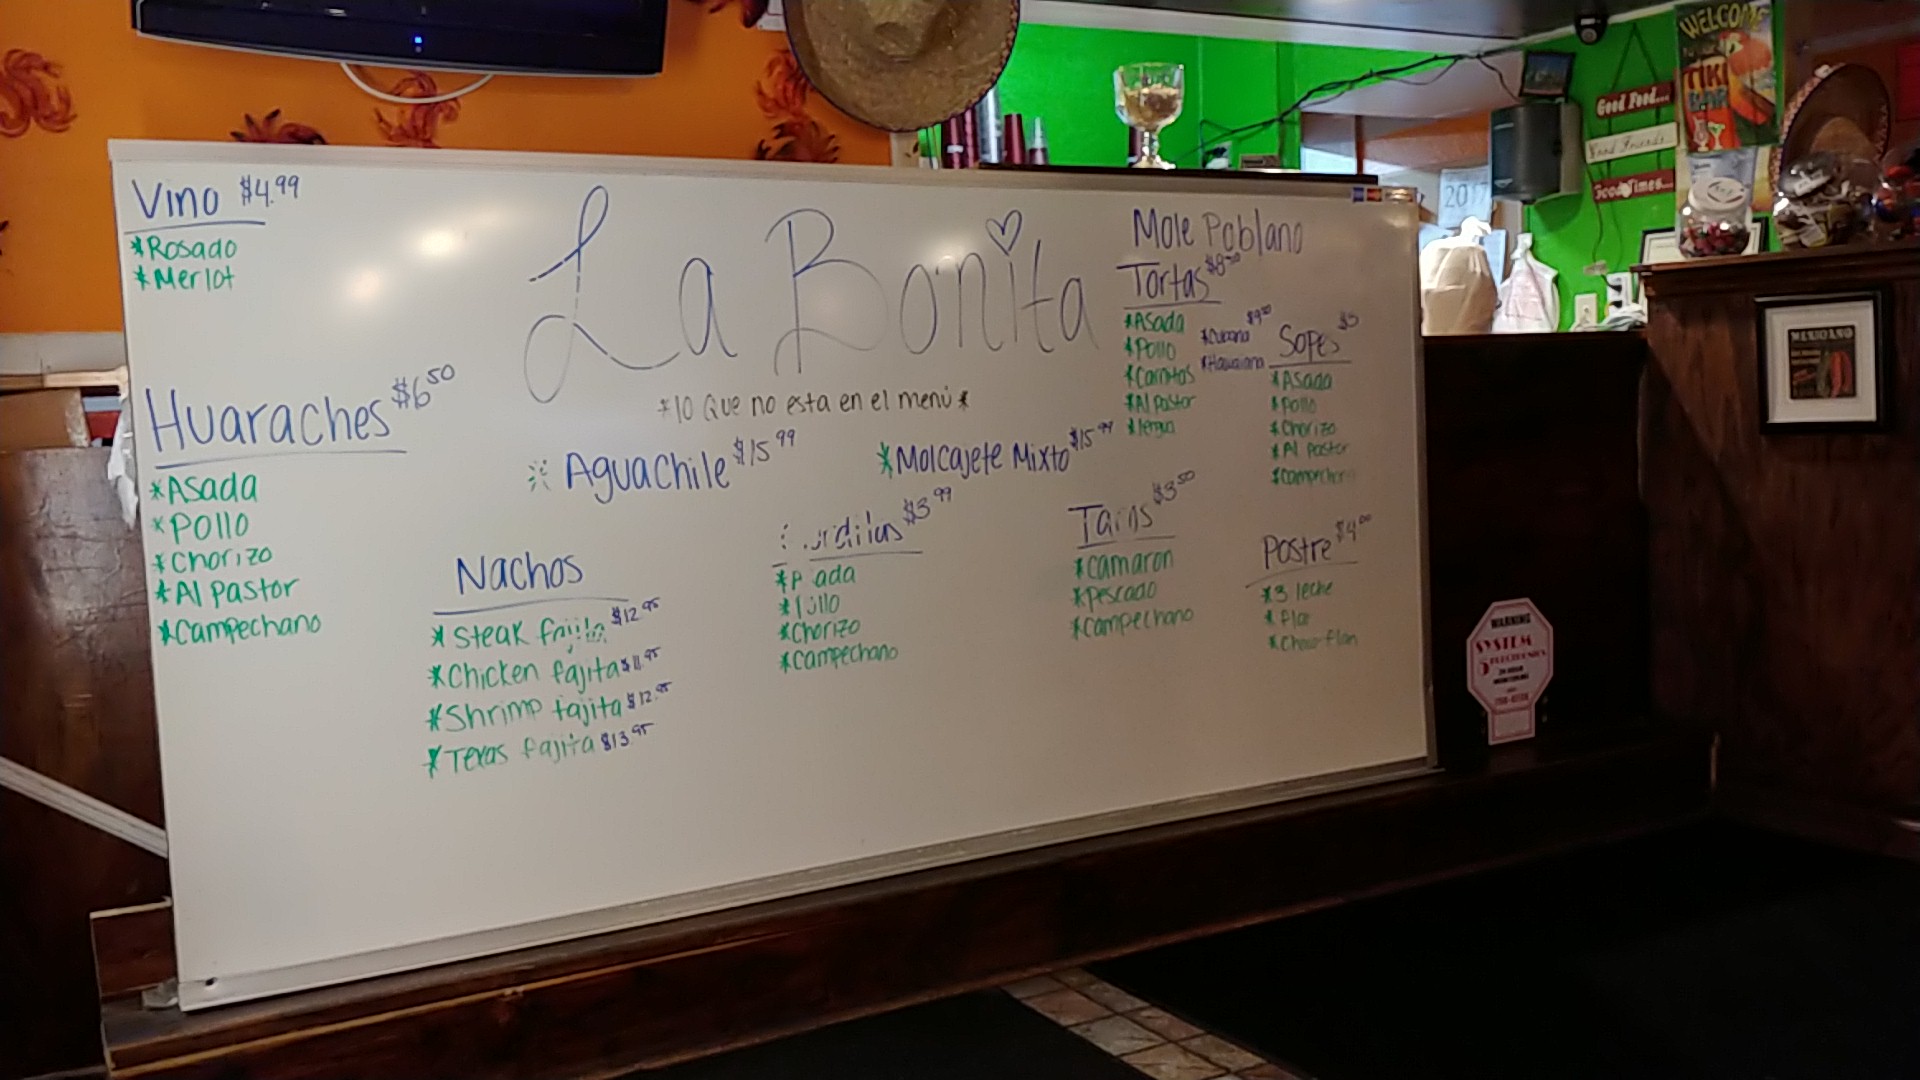 Vino $4.99
*Rosado
*Merlot
Huaraches $6 50
*Asada
*Pollo
*Chorizo
*Al Pastor
*Campechano
La Bonita
*lo Que no esta en el menú*
Aguachile $15 99
*Molcajete Mixto $15 99
Nachos
*Steak fajita $12.95
*Chicken fajita $11.95
*Shrimp fajita $12.95
*Texas fajita $13.95
$3 99
*Chorizo
*Campechano
Tacos $3 50
*Camaron
*Pescado
*Campechano
Mole Poblano
Tortas $8 50
*Asada
*Pollo
*Carnitas
*Al Pastor
*lengua
*Cubana $9 50
*Hawaiiana
Sopes $5
*Asada
*Pollo
*Chorizo
*Al Pastor
*Campechano
Postre $4 00
*3 leche
*flan
*Choco-flan
WELCOME
TIKI
BAR
Good Food...
Good Friends
Good Times...
2017
MEXICANO
WARNING
SYSTEM
5 ELECTRONICS
24 HOUR